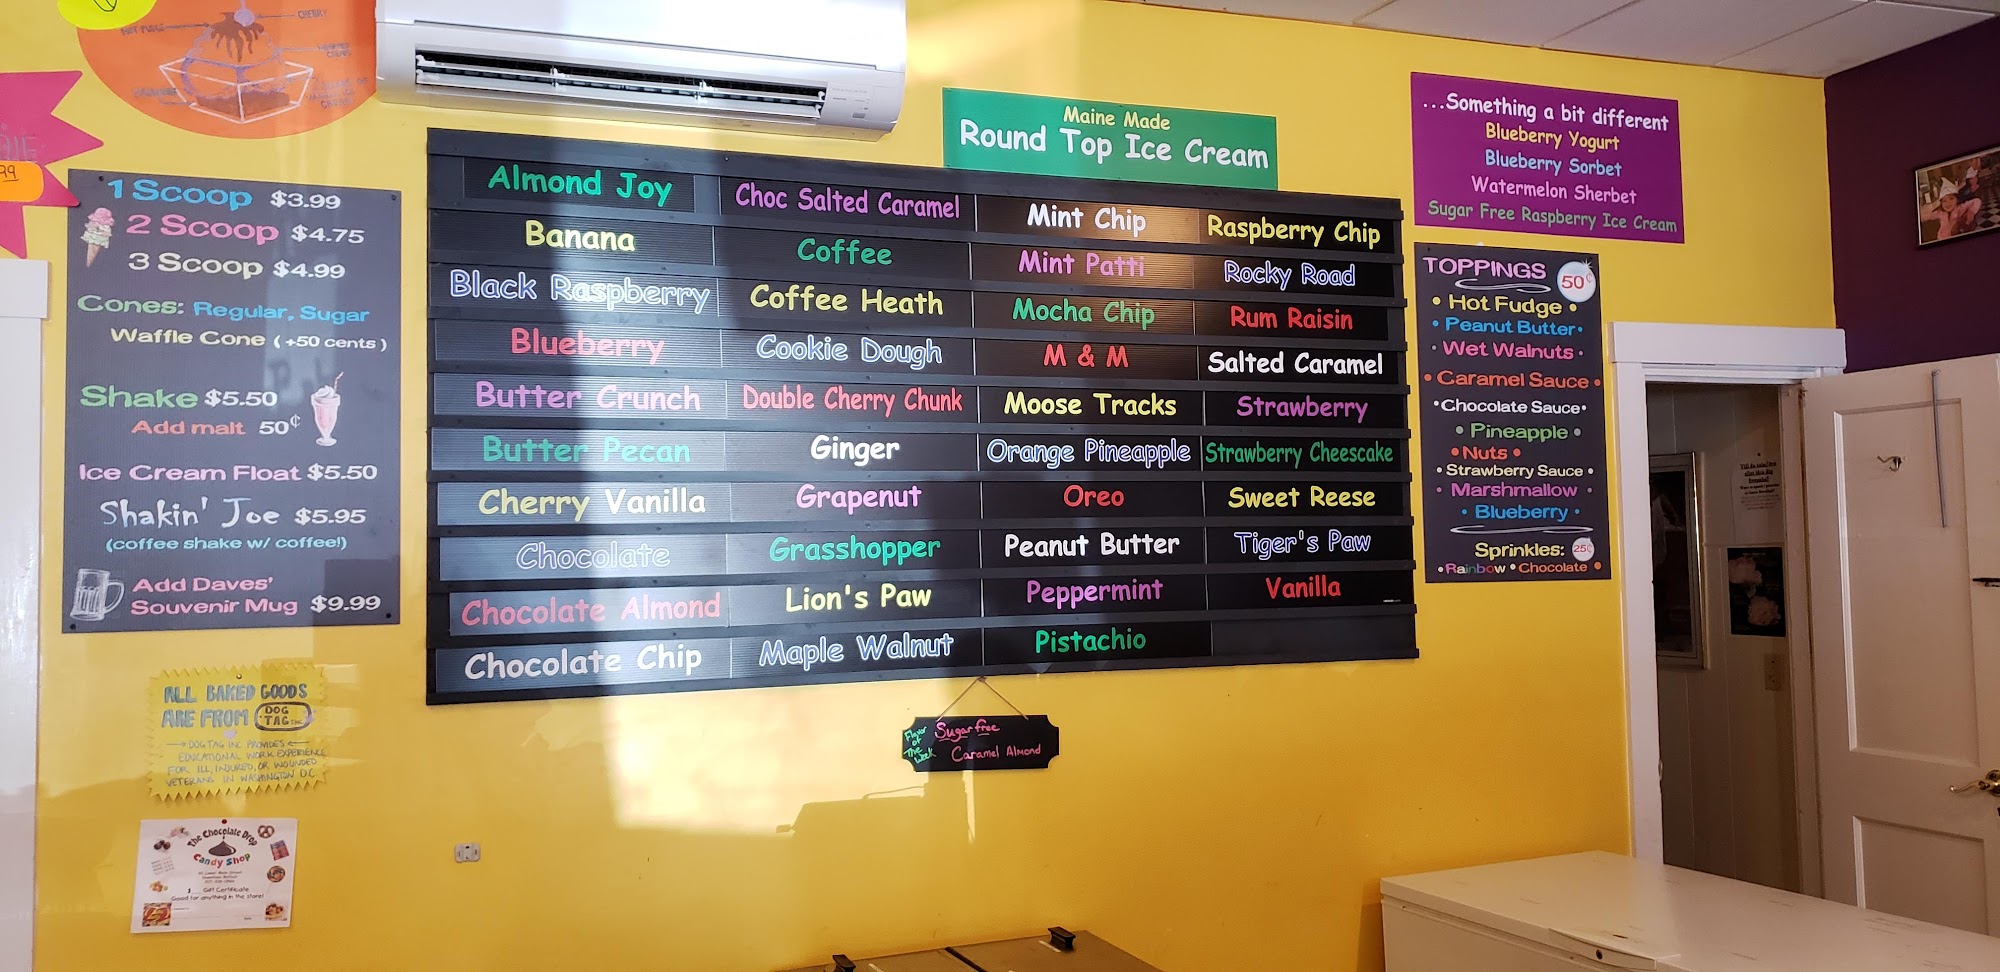 CHERRY
HOT FUDGE
99
1 Scoop $3.99
2 Scoop $4.75
3 Scoop $4.99
Cones: Regular, Sugar
Waffle Cone (+50 cents)
Shake $5.50
Add malt 50¢
Ice Cream Float $5.50
Shakin' Joe $5.95
(coffee shake w/ coffee!)
Add Daves'
Souvenir Mug $9.99
ALL BAKED GOODS
ARE FROM DOG TAG INC
→ DOG TAG INC PROVIDES ←
EDUCATIONAL WORK EXPERIENCE
FOR ILL, INJURED, OR WOUNDED
VETERANS IN WASHINGTON D.C.
The Chocolate Drop
Candy Shop
Gift Certificate
Good for anything in the store!
Maine Made
Round Top Ice Cream
Almond Joy
Banana
Black Raspberry
Blueberry
Butter Crunch
Butter Pecan
Cherry Vanilla
Chocolate
Chocolate Almond
Chocolate Chip
Choc Salted Caramel
Coffee
Coffee Heath
Cookie Dough
Double Cherry Chunk
Ginger
Grapenut
Grasshopper
Lion's Paw
Maple Walnut
Mint Chip
Mint Patti
Mocha Chip
M & M
Moose Tracks
Orange Pineapple
Oreo
Peanut Butter
Peppermint
Pistachio
Raspberry Chip
Rocky Road
Rum Raisin
Salted Caramel
Strawberry
Strawberry Cheescake
Sweet Reese
Tiger's Paw
Vanilla
Flavor of The Week
Sugar free
Caramel Almond
...Something a bit different
Blueberry Yogurt
Blueberry Sorbet
Watermelon Sherbet
Sugar Free Raspberry Ice Cream
TOPPINGS 50¢
• Hot Fudge •
• Peanut Butter •
• Wet Walnuts •
• Caramel Sauce •
• Chocolate Sauce •
• Pineapple •
• Nuts •
• Strawberry Sauce •
• Marshmallow •
• Blueberry •
Sprinkles: 25¢
• Rainbow • Chocolate •